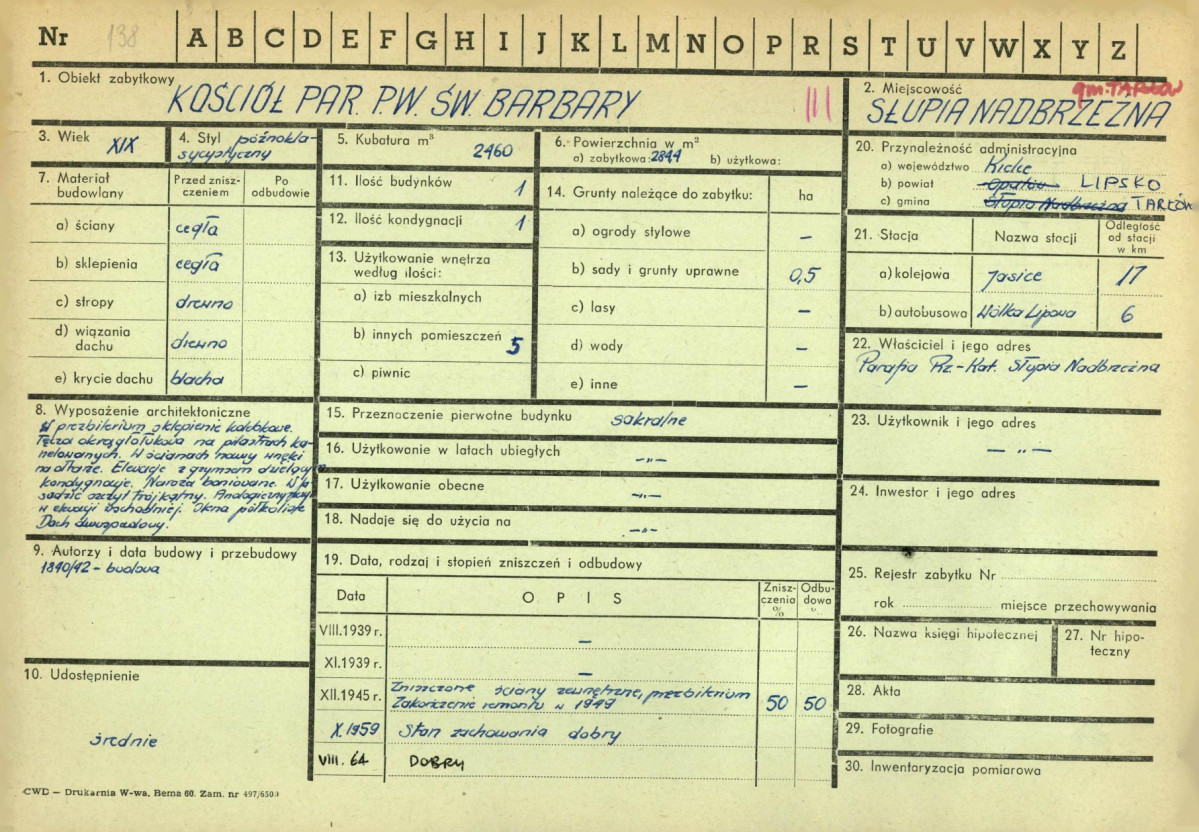 Nr 138 A B C D E F G H I J K L M N O P R S T U V W X Y Z
1. Obiekt zabytkowy
KOŚCIÓŁ PAR. P.W. ŚW. BARBARY
III
2. Miejscowość
gm. TARŁÓW
SŁUPIA NADBRZEŻNA
3. Wiek XIX
4. Styl późnokla-
sycystyczny
5. Kubatura m³
2460
6. Powierzchnia w m²
a) zabytkowa: 2844 b) użytkowa:
7. Materiał
budowlany
Przed znisz-
czeniem
Po
odbudowie
a) ściany cegła
b) sklepienia cegła
c) stropy drewno
d) wiązania
dachu drewno
e) krycie dachu blacha
8. Wyposażenie architektoniczne
W prezbiterium sklepienie kolebkowe.
Tęcza okrągłołukowa na pilastrach ka-
nelowanych. W ścianach nawy wnęki
na ołtarze. Elewacje z gzymsem
kondygnacje. Naroża boniowane. W
szczyt trójkątny. Analogiczny
w elewacji zachodniej. Okna półkoliste
Dach dwuspadowy.
9. Autorzy i data budowy i przebudowy
1840/42 – budowa
10. Udostępnienie
średnie
11. Ilość budynków 1
12. Ilość kondygnacji 1
13. Użytkowanie wnętrza
według ilości:
a) izb mieszkalnych
b) innych pomieszczeń 5
c) piwnic
14. Grunty należące do zabytku: ha
a) ogrody stylowe –
b) sady i grunty uprawne 0,5
c) lasy –
d) wody –
e) inne –
15. Przeznaczenie pierwotne budynku sakralne
16. Użytkowanie w latach ubiegłych –„–
17. Użytkowanie obecne –„–
18. Nadaje się do użycia na –„–
19. Data, rodzaj i stopień zniszczeń i odbudowy
Data OPIS
Znisz-
czenia
%
Odbu-
dowa
%
VIII.1939 r. –
XI.1939 r. –
XII.1945 r. Zniszczone ściany zewnętrzne, prezbiterium
Zakończenie remontu w 1949 50 50
X.1959 Stan zachowania dobry
VIII. 64 DOBRY
20. Przynależność administracyjna
a) województwo Kielce
b) powiat Opatów LIPSKO
c) gmina Słupia Nadbrzeżna TARŁÓW
21. Stacja Nazwa stacji
Odległość
od stacji
w km
a) kolejowa Jasice 17
b) autobusowa Wólka Lipowa 6
22. Właściciel i jego adres
Parafia Rz-Kat. Słupia Nadbrzeżna
23. Użytkownik i jego adres
– „ –
24. Inwestor i jego adres
25. Rejestr zabytku Nr
rok miejsce przechowywania
26. Nazwa księgi hipotecznej
27. Nr hipo-
teczny
28. Akta
29. Fotografie
30. Inwentaryzacja pomiarowa
CWD — Drukarnia W-wa, Bema 60. Zam. nr 497/6500